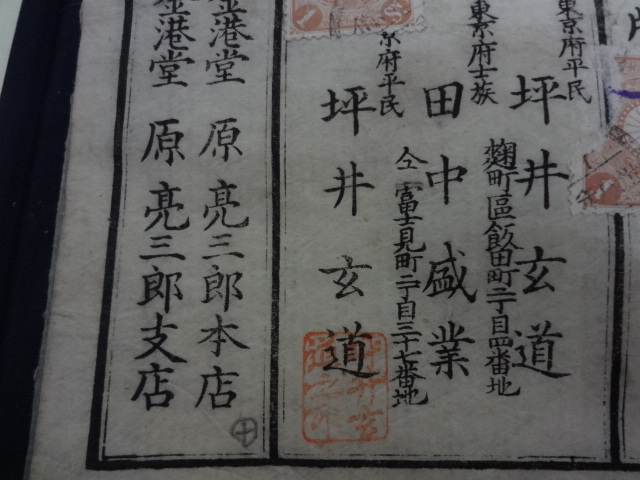 東京府平民
坪井玄道
麹町區飯田町二丁目四番地
東京府士族
田中盛業
仝富士見町二丁目三十七番地
京府平民
坪井玄道
金港堂 原亮三郎本店
金港堂 原亮三郎支店